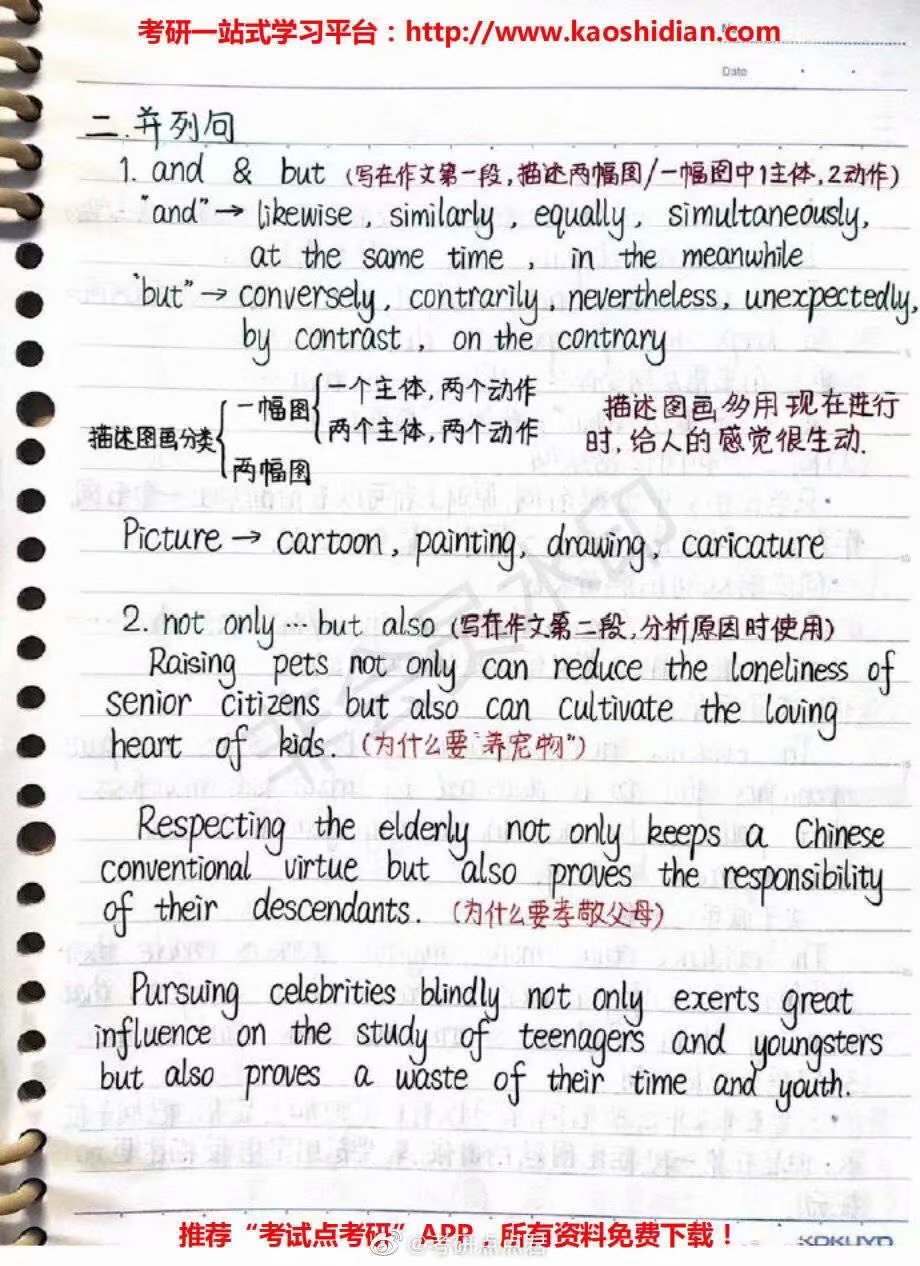 考研一站式学习平台：http://www.kaoshidian.com
Date
二.并列句
1. and & but (写在作文第一段,描述两幅图/一幅图中1主体,2动作)
"and"→ likewise, similarly, equally, simultaneously,
at the same time, in the meanwhile
"but"→ conversely, contrarily, nevertheless, unexpectedly,
by contrast, on the contrary
描述图画分类
一幅图
一个主体,两个动作
两个主体,两个动作
两幅图
描述图画多用现在进行
时,给人的感觉很生动.
Picture → cartoon, painting, drawing, caricature
2. not only…but also (写在作文第二段,分析原因时使用)
Raising pets not only can reduce the loneliness of
senior citizens but also can cultivate the loving
heart of kids. (为什么要"养宠物")
Respecting the elderly not only keeps a Chinese
conventional virtue but also proves the responsibility
of their descendants. (为什么要孝敬父母)
Pursuing celebrities blindly not only exerts great
influence on the study of teenagers and youngsters
but also proves a waste of their time and youth.
推荐“考试点考研”APP，所有资料免费下载！
@考研点点君
KOKUYO